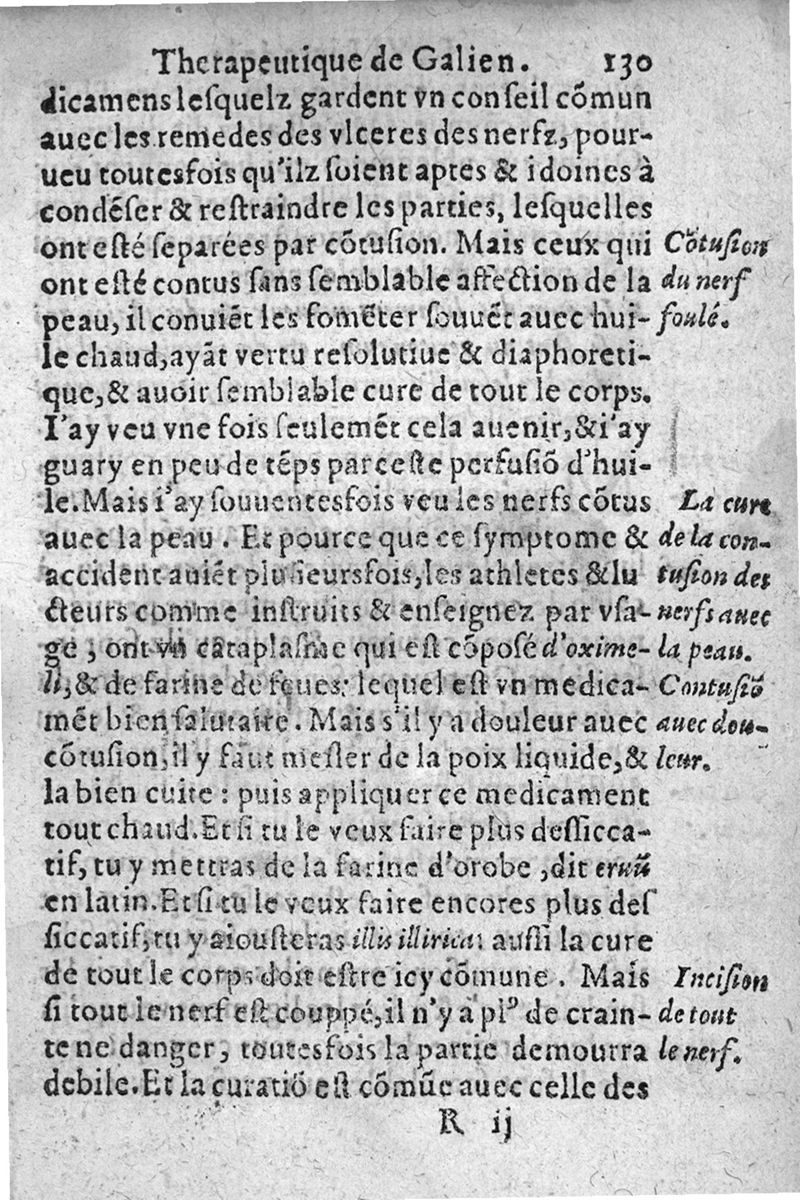 Therapeutique de Galien. 130
dicamens lesquelz gardent vn conseil cõmun
auec les remedes des vlceres des nerfz, pour-
ueu toutesfois qu'ilz soient aptes & idoines à
condẽser & restraindre les parties, lesquelles
ont esté separées par cõtusion. Mais ceux qui
ont esté contus sans semblable affection de la
peau, il conuiẽt les fomẽter souuẽt auec hui-
le chaud, ayãt vertu resolutiue & diaphoreti-
que, & auoir semblable cure de tout le corps.
I'ay veu vne fois seulemẽt cela auenir, & i'ay
guary en peu de tẽps par ceste perfusiõ d'hui-
le. Mais i'ay souuentesfois veu les nerfs cõtus
auec la peau . Et pource que ce symptome &
accident auiẽt plusieursfois, les athletes & lu
cteurs comme instruits & enseignez par vsa-
ge , ont vn cataplasme qui est cõposé d'oxime-
li, & de farine de feues: lequel est vn medica-
mẽt bien salutaire . Mais s'il y a douleur auec
cõtusion, il y faut mesler de la poix liquide, &
la bien cuite : puis appliquer ce medicament
tout chaud. Et si tu le veux faire plus dessicca-
tif, tu y mettras de la farine d'orobe , dit eruũ
en latin. Et si tu le veux faire encores plus des
siccatif, tu y aiousteras illis illirica: aussi la cure
de tout le corps doit estre icy cõmune . Mais
si tout le nerf est couppé, il n'y a plꝰ de crain-
te ne danger, toutesfois la partie demourra
debile. Et la curatiõ est cõmũe auec celle des
R ij
Cõtusion
du nerf
foulé.
La cure
de la con-
tusion des
nerfs auec
la peau.
Contusiõ
auec dou-
leur.
Incision
de tout
le nerf.